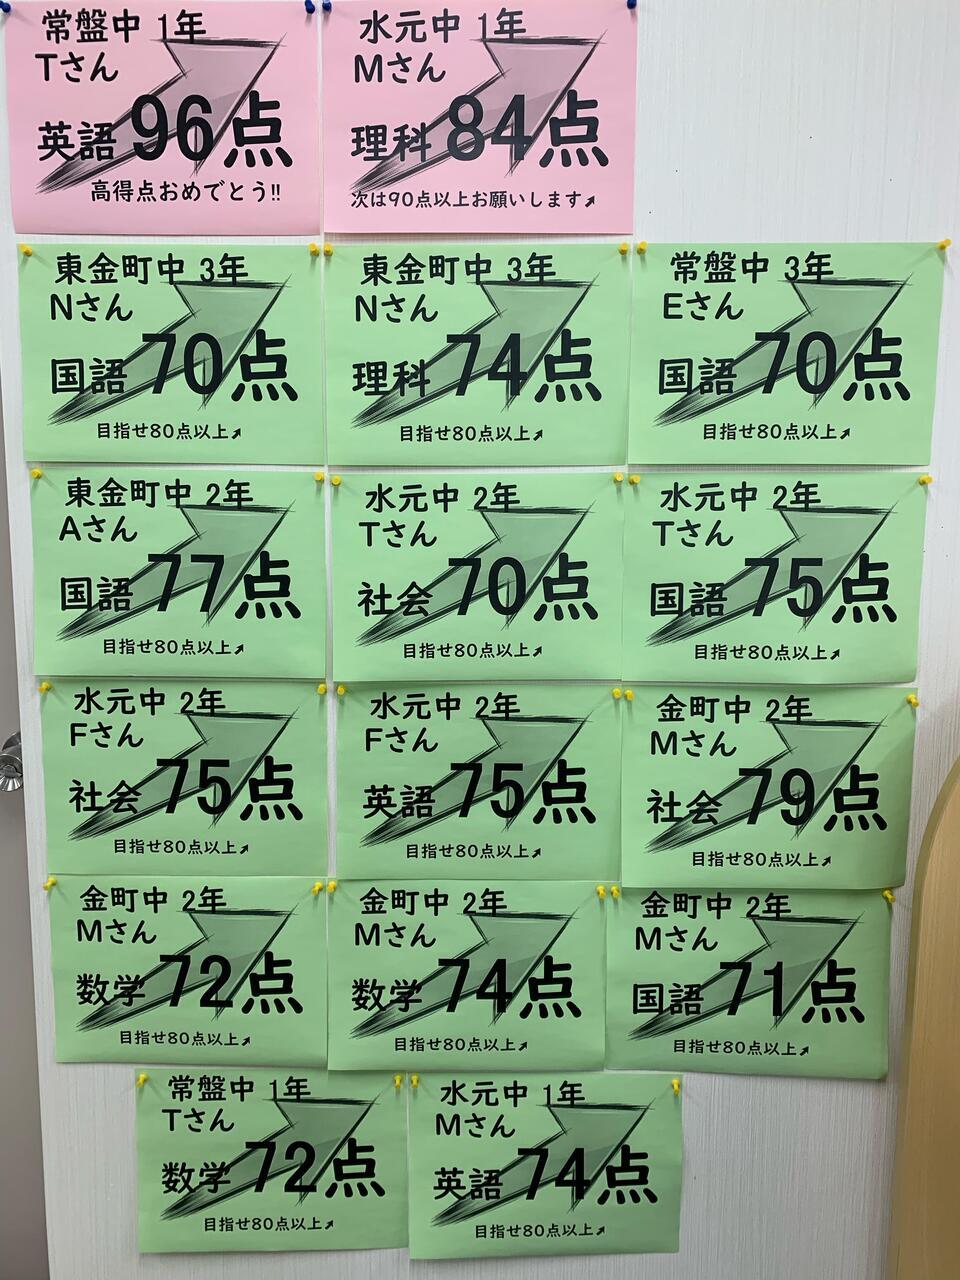 常盤中 1年
Tさん
英語 96点
高得点おめでとう!!
水元中 1年
Mさん
理科 84点
次は90点以上お願いします↗
東金町中 3年
Nさん
国語 70点
目指せ80点以上↗
東金町中 3年
Nさん
理科 74点
目指せ80点以上↗
常盤中 3年
Eさん
国語 70点
目指せ80点以上↗
東金町中 2年
Aさん
国語 77点
目指せ80点以上↗
水元中 2年
Tさん
社会 70点
目指せ80点以上↗
水元中 2年
Tさん
国語 75点
目指せ80点以上↗
水元中 2年
Fさん
社会 75点
目指せ80点以上↗
水元中 2年
Fさん
英語 75点
目指せ80点以上↗
金町中 2年
Mさん
社会 79点
目指せ80点以上↗
金町中 2年
Mさん
数学 72点
目指せ80点以上↗
金町中 2年
Mさん
数学 74点
目指せ80点以上↗
金町中 2年
Mさん
国語 71点
目指せ80点以上↗
常盤中 1年
Tさん
数学 72点
目指せ80点以上↗
水元中 1年
Mさん
英語 74点
目指せ80点以上↗